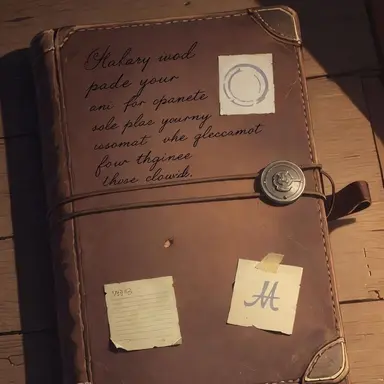 wod
pade your
ani for opanete
sole plae yourny
usomat vhe gleccamot
fowr thginee
those clowd.
M